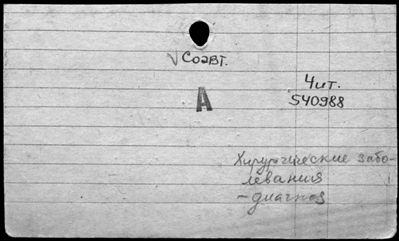 √ Соавт.
А
Чит.
540988
Хирургические забо-
левания
- диагноз